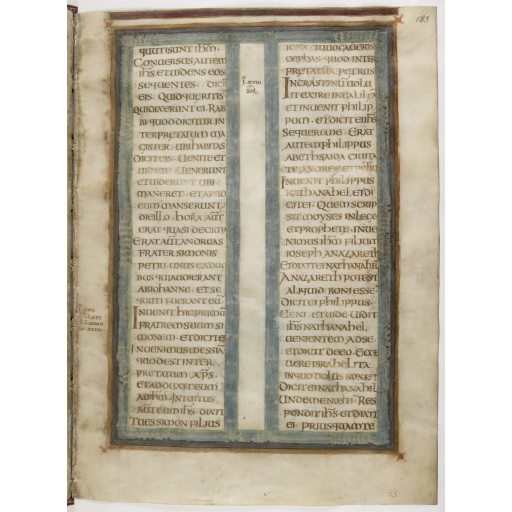 183
quuti sunt ihm̄ ·
Conuersus autem
ihs̄ et uidens eos
sequentes · dicit
eis · Quid queritis
qui dixerunt ei · Rab
bi · quod dicitur in
terpretatum ma
gister · ubi habitas
dicit eis · Uenite et
uidete · Uenerunt
et uiderunt ubi
maneret · et apud
eum manserunt
die illo · hora aut̄
erat quasi decima
Erat autem andreas
frater simonis
petri · unus ex duo
bus qui audierant
ab iohanne · et se
quuti fuerant eū
Inuenit hic primū
fratrem suum si
monem · et dicit ei
Inuenimus messiā
quod est inter
pretatum xp̄s ·
Et adduxit eum
ad ihm̄ · Intuitus
autem ihs̄ dixit
Tu es simon filius
iona · tu uocaberis
cephas · quod inter
pretatur petrus
In crastinū uolu
it exire in galilea
et inuenit philip
pum · et dicit ei ihs̄
Sequere me · Erat
autem philippus
a bethsaida ciuita
te andreae et petri
Inuenit philippus
nathanahel · et di
cit ei · Quem scrip
sit moyses in lege
et prophete · inue
nimus ihm̄ filium
ioseph a nazareth
Et dixit ei nathanahel
A nazareth potest
aliquid boni esse
Dicit ei philippus ·
Ueni et uide · Uidit
ihs̄ nathanahel
uenientem ad se ·
et dicit de eo · Ecce
uere israhelita
in quo dolus non est
Dicit ei nathanahel
Unde me nosti · Res
pondit ihs̄ et dixit
ei · priusquam te